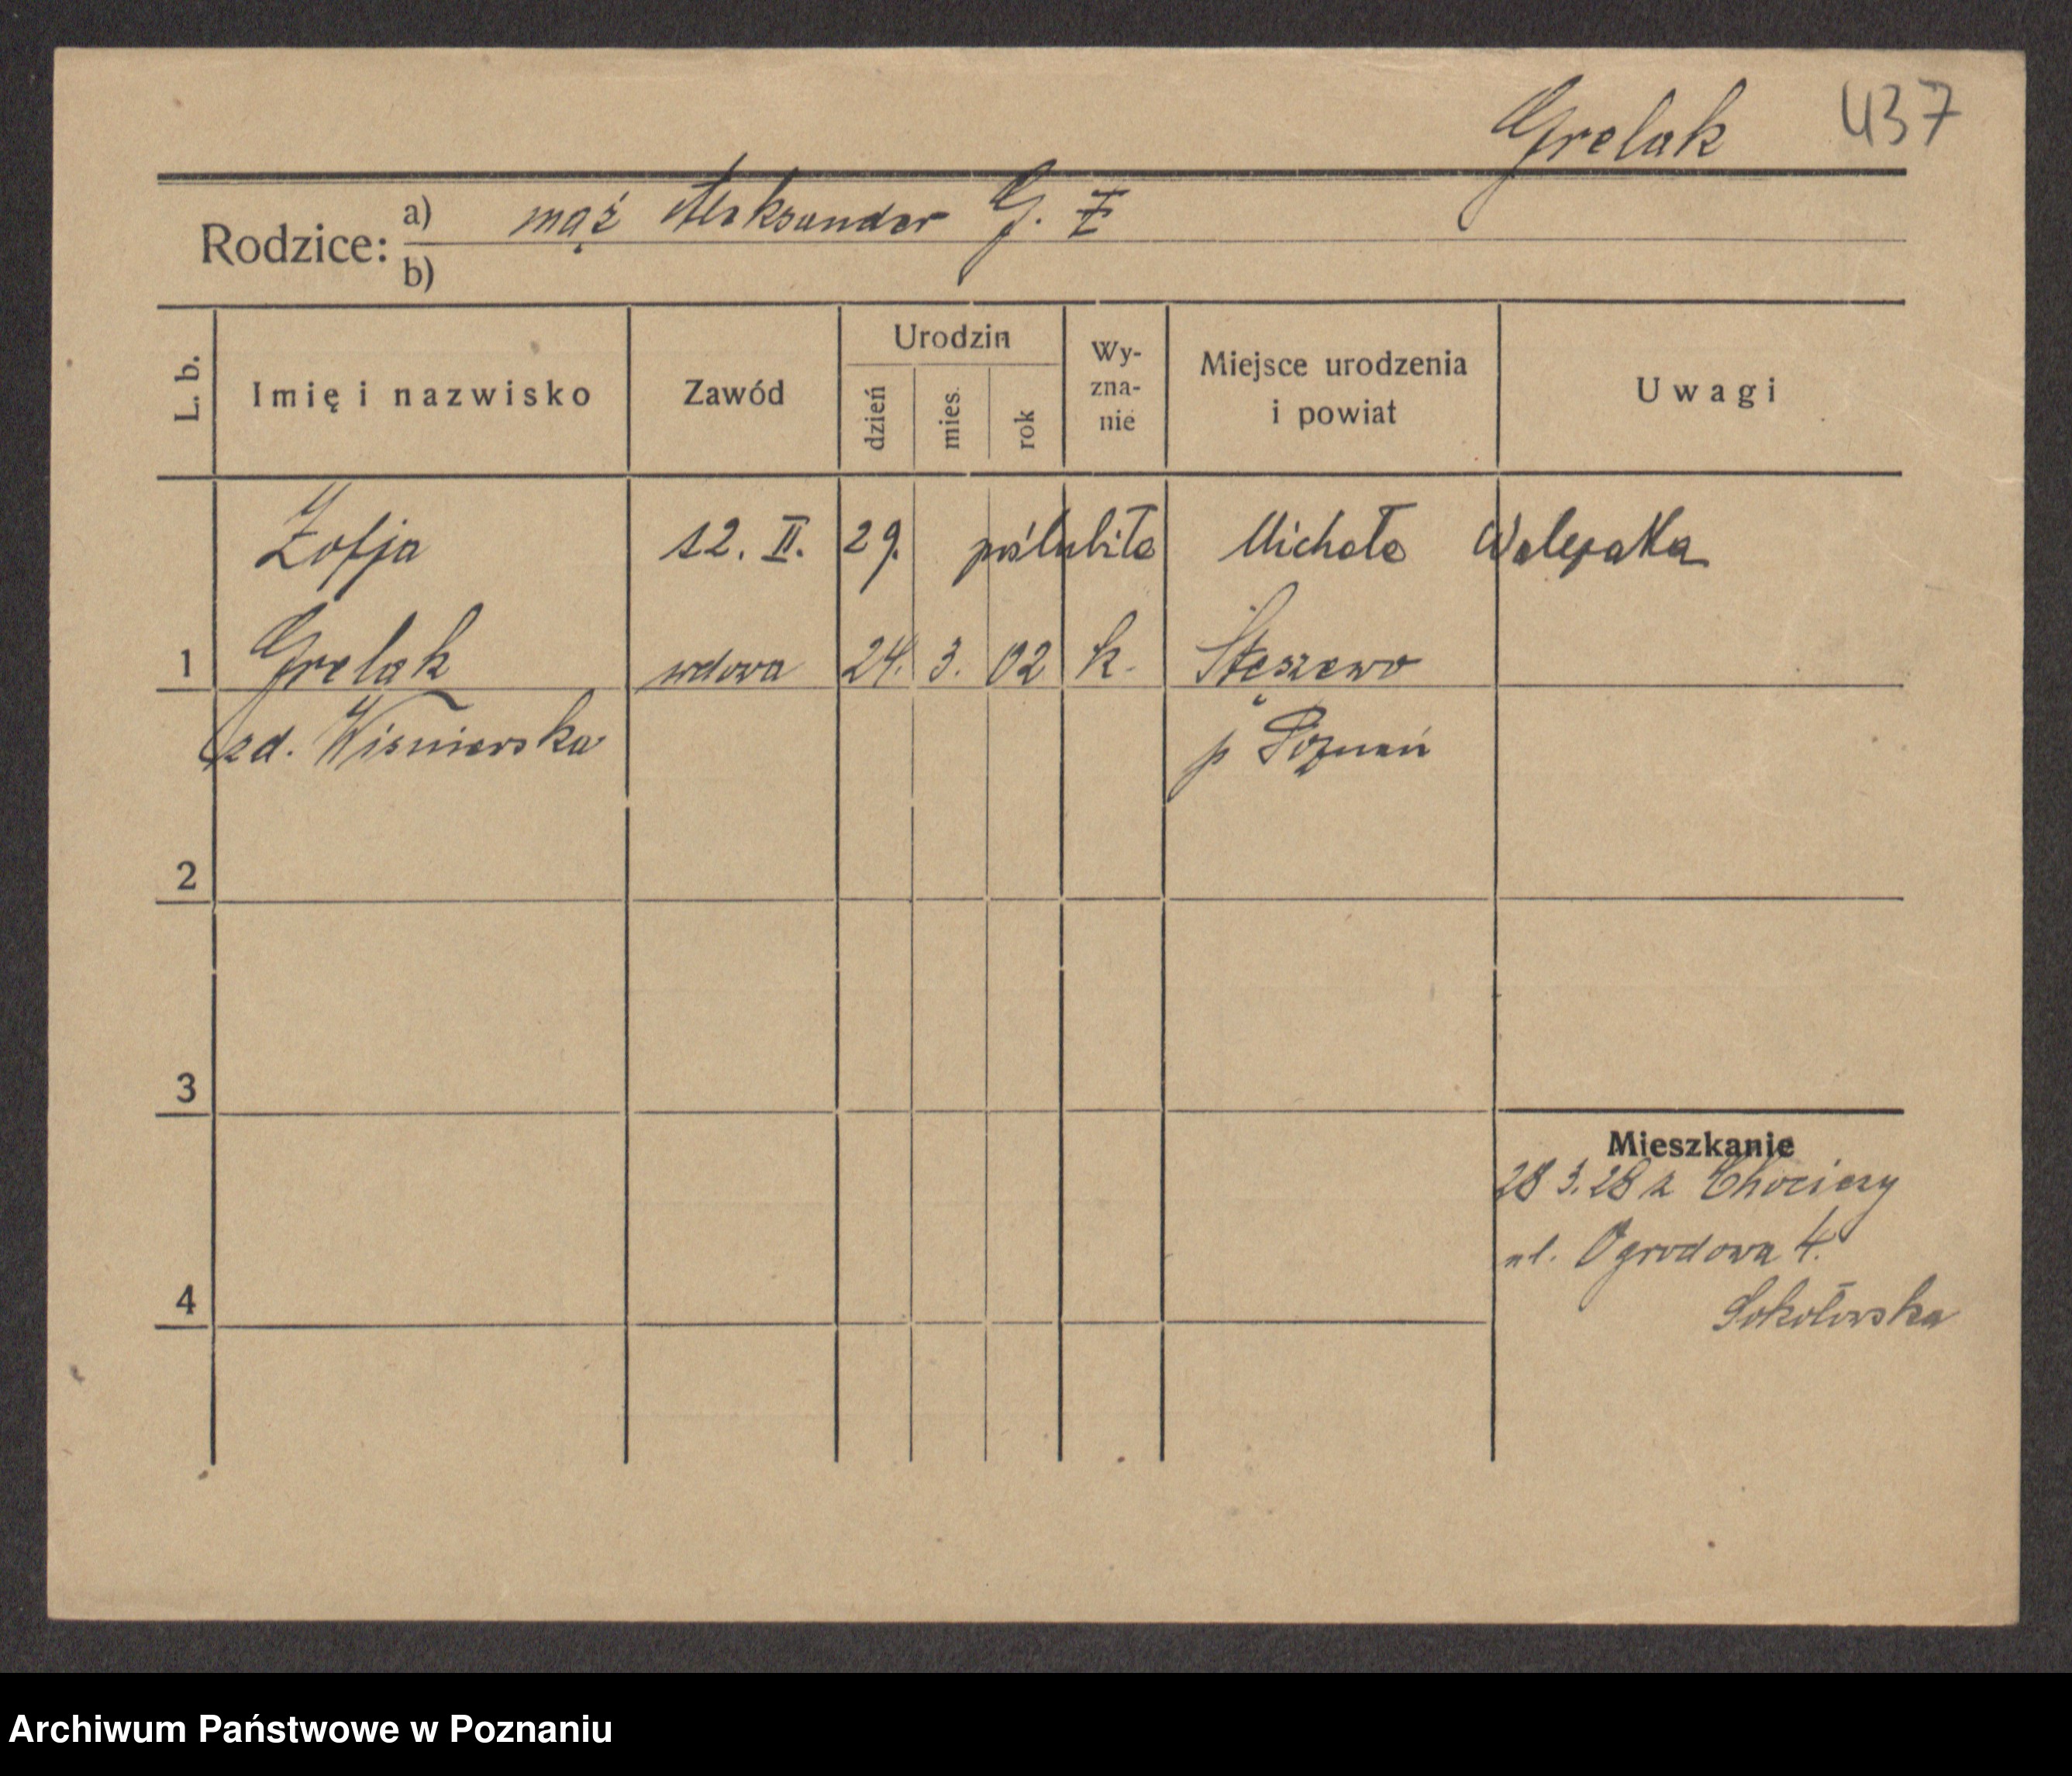 Grelak 437
Rodzice: a) mąż Aleksander G. Ł
b)
L. b. Imię i nazwisko Zawód Urodzin dzień mies. rok Wy-zna-nie Miejsce urodzenia i powiat Uwagi
Zofja 12. II. 29. poślubiła Michała
1 Grelak wdowa 24. 3. 02 k. Stęszewo
zd. Wiśniewska p Poznań
2
3
Mieszkanie
28 3. 28 z
ul. Ogrodowa 4.
4 Sokołowska
Archiwum Państwowe w Poznaniu